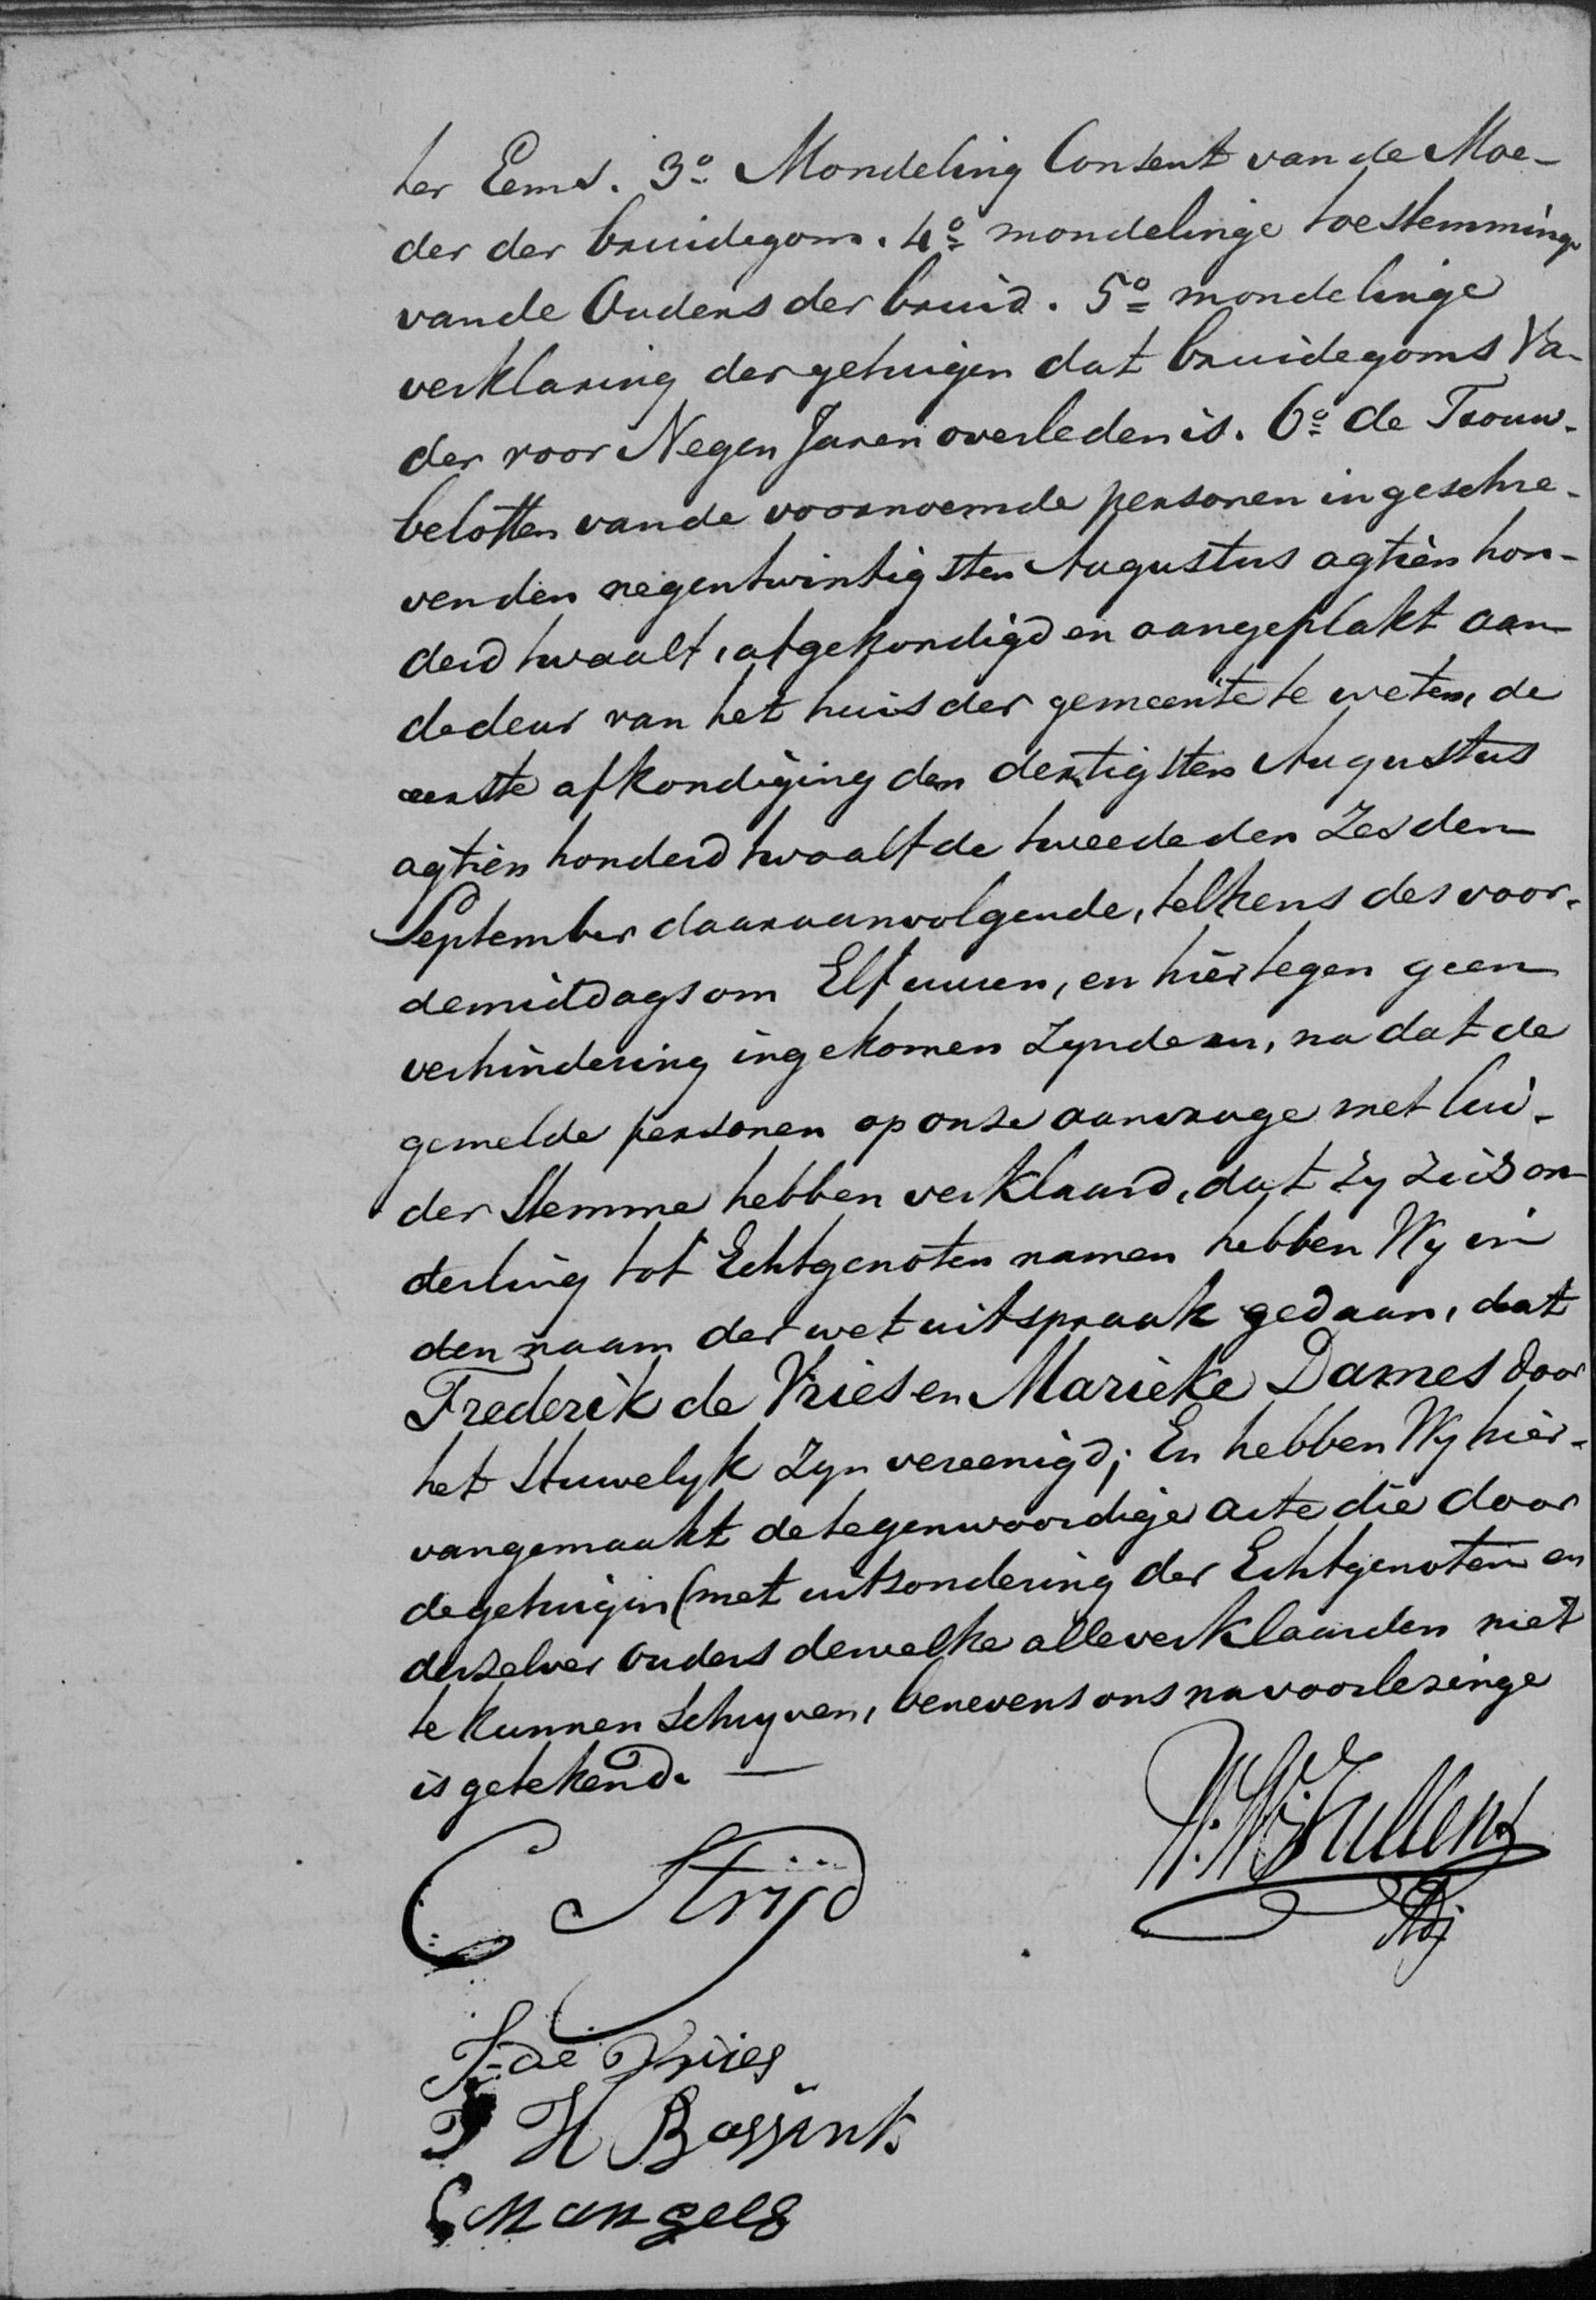 ter Eems. 3º Mondeling Consent van de Moe-
der der bruidegom. 4º mondelinge toestemming
van de Ouders der bruid. 5º mondelinge
verklaring der getuigen dat bruidegoms Va-
der voor Negen Jaren overleden is. 6º de Trouw-
beloften van de voornoemde personen ingeschre-
ven den negentwintigsten Augustus agtien hon-
derd twaalf, afgekondigd en aangeplakt aan
de deur van het huis der gemeente te weten, de
eerste afkondiging den dertigsten Augustus
agtien honderd twaalf de tweede den Zesden
September daaraanvolgende, telkens des voor-
demiddags om Elf uuren, en hier tegen geen
verhindering ingekomen zynde en, na dat de
gemelde personen op onse aanvrage met lui-
der stemme hebben verklaard, dat zy zeis on
derling tot Echtgenoten namen hebben Wy in
den naam der wet uitspraak gedaan, dat
Frederik de Vries en Marieke Dames door
het Huwelyk zyn vereenigd; En hebben Wy hier-
van gemaakt de tegenwoordige acte die door
de getuigen (met uitzondering der Echtgenoten en
derzelver ouders dewelke alle verklaarden niet
te kunnen schryven, benevens ons na voorlezinge
is getekend. —
C Strijd
de Vries
H Bossink
Mangels
Adj